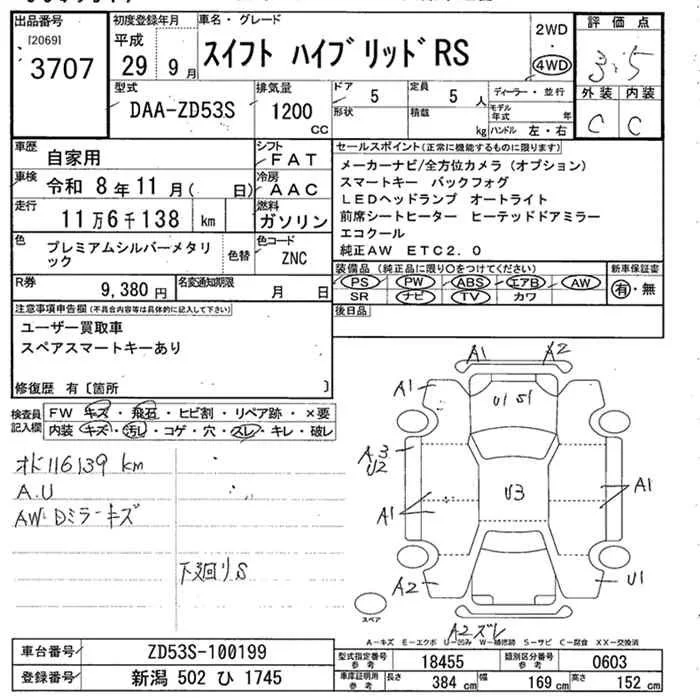 出品番号
[2069]
3707
初度登録年月
平成
29 9月
車名・グレード
スイフト ハイブリッドRS
2WD
・
4WD
評価点
3.5
外装 内装
C C
型式
DAA-ZD53S
排気量
1200
CC
ドア 5
形状
定員 5 人
積載 kg
ディーラー・並行
モデル年式 年
ハンドル 左・右
車歴
自家用
シフト
FAT
車検
令和 8年11月( 日)
冷房
AAC
走行
11万6千138 km
燃料
ガソリン
色
プレミアムシルバーメタリック
色替
色コード
ZNC
R券
9,380円
名変通知期限
月 日
セールスポイント(正常に機能するものに限ります)
メーカーナビ/全方位カメラ(オプション)
スマートキー バックフォグ
LEDヘッドランプ オートライト
前席シートヒーター ヒーテッドドアミラー
エコクール
純正AW ETC2.0
装備品(純正品に限り○をつけてください)
PS PW ABS エアB AW
SR ナビ TV カワ
新車保証書
有・無
後日品
注意事項申告欄(不具合内容等は具体的に記入して下さい)
ユーザー買取車
スペアスマートキーあり
修復歴 有〔箇所 〕
検査員記入欄
FW キズ・飛石・ヒビ割・リペア跡・×要
内装 キズ・汚レ・コゲ・穴・スレ・キレ・破レ
オド116139 km
A.U
AW・Dミラーキズ
下廻りS
A1 A2
A1
U1 S1
A3
U2
U3
A1
A1
A2
U1
A2ズレ
スペア
A－キズ E－エクボ U－凹み W－補修跡 S－サビ C－腐食 XX－交換済
車台番号
ZD53S-100199
登録番号
新潟 502 ひ 1745
型式指定番号
参考
18455
類別区分番号
参考
0603
車庫証明用
参考
長さ 384 cm 幅 169 cm 高さ 152 cm